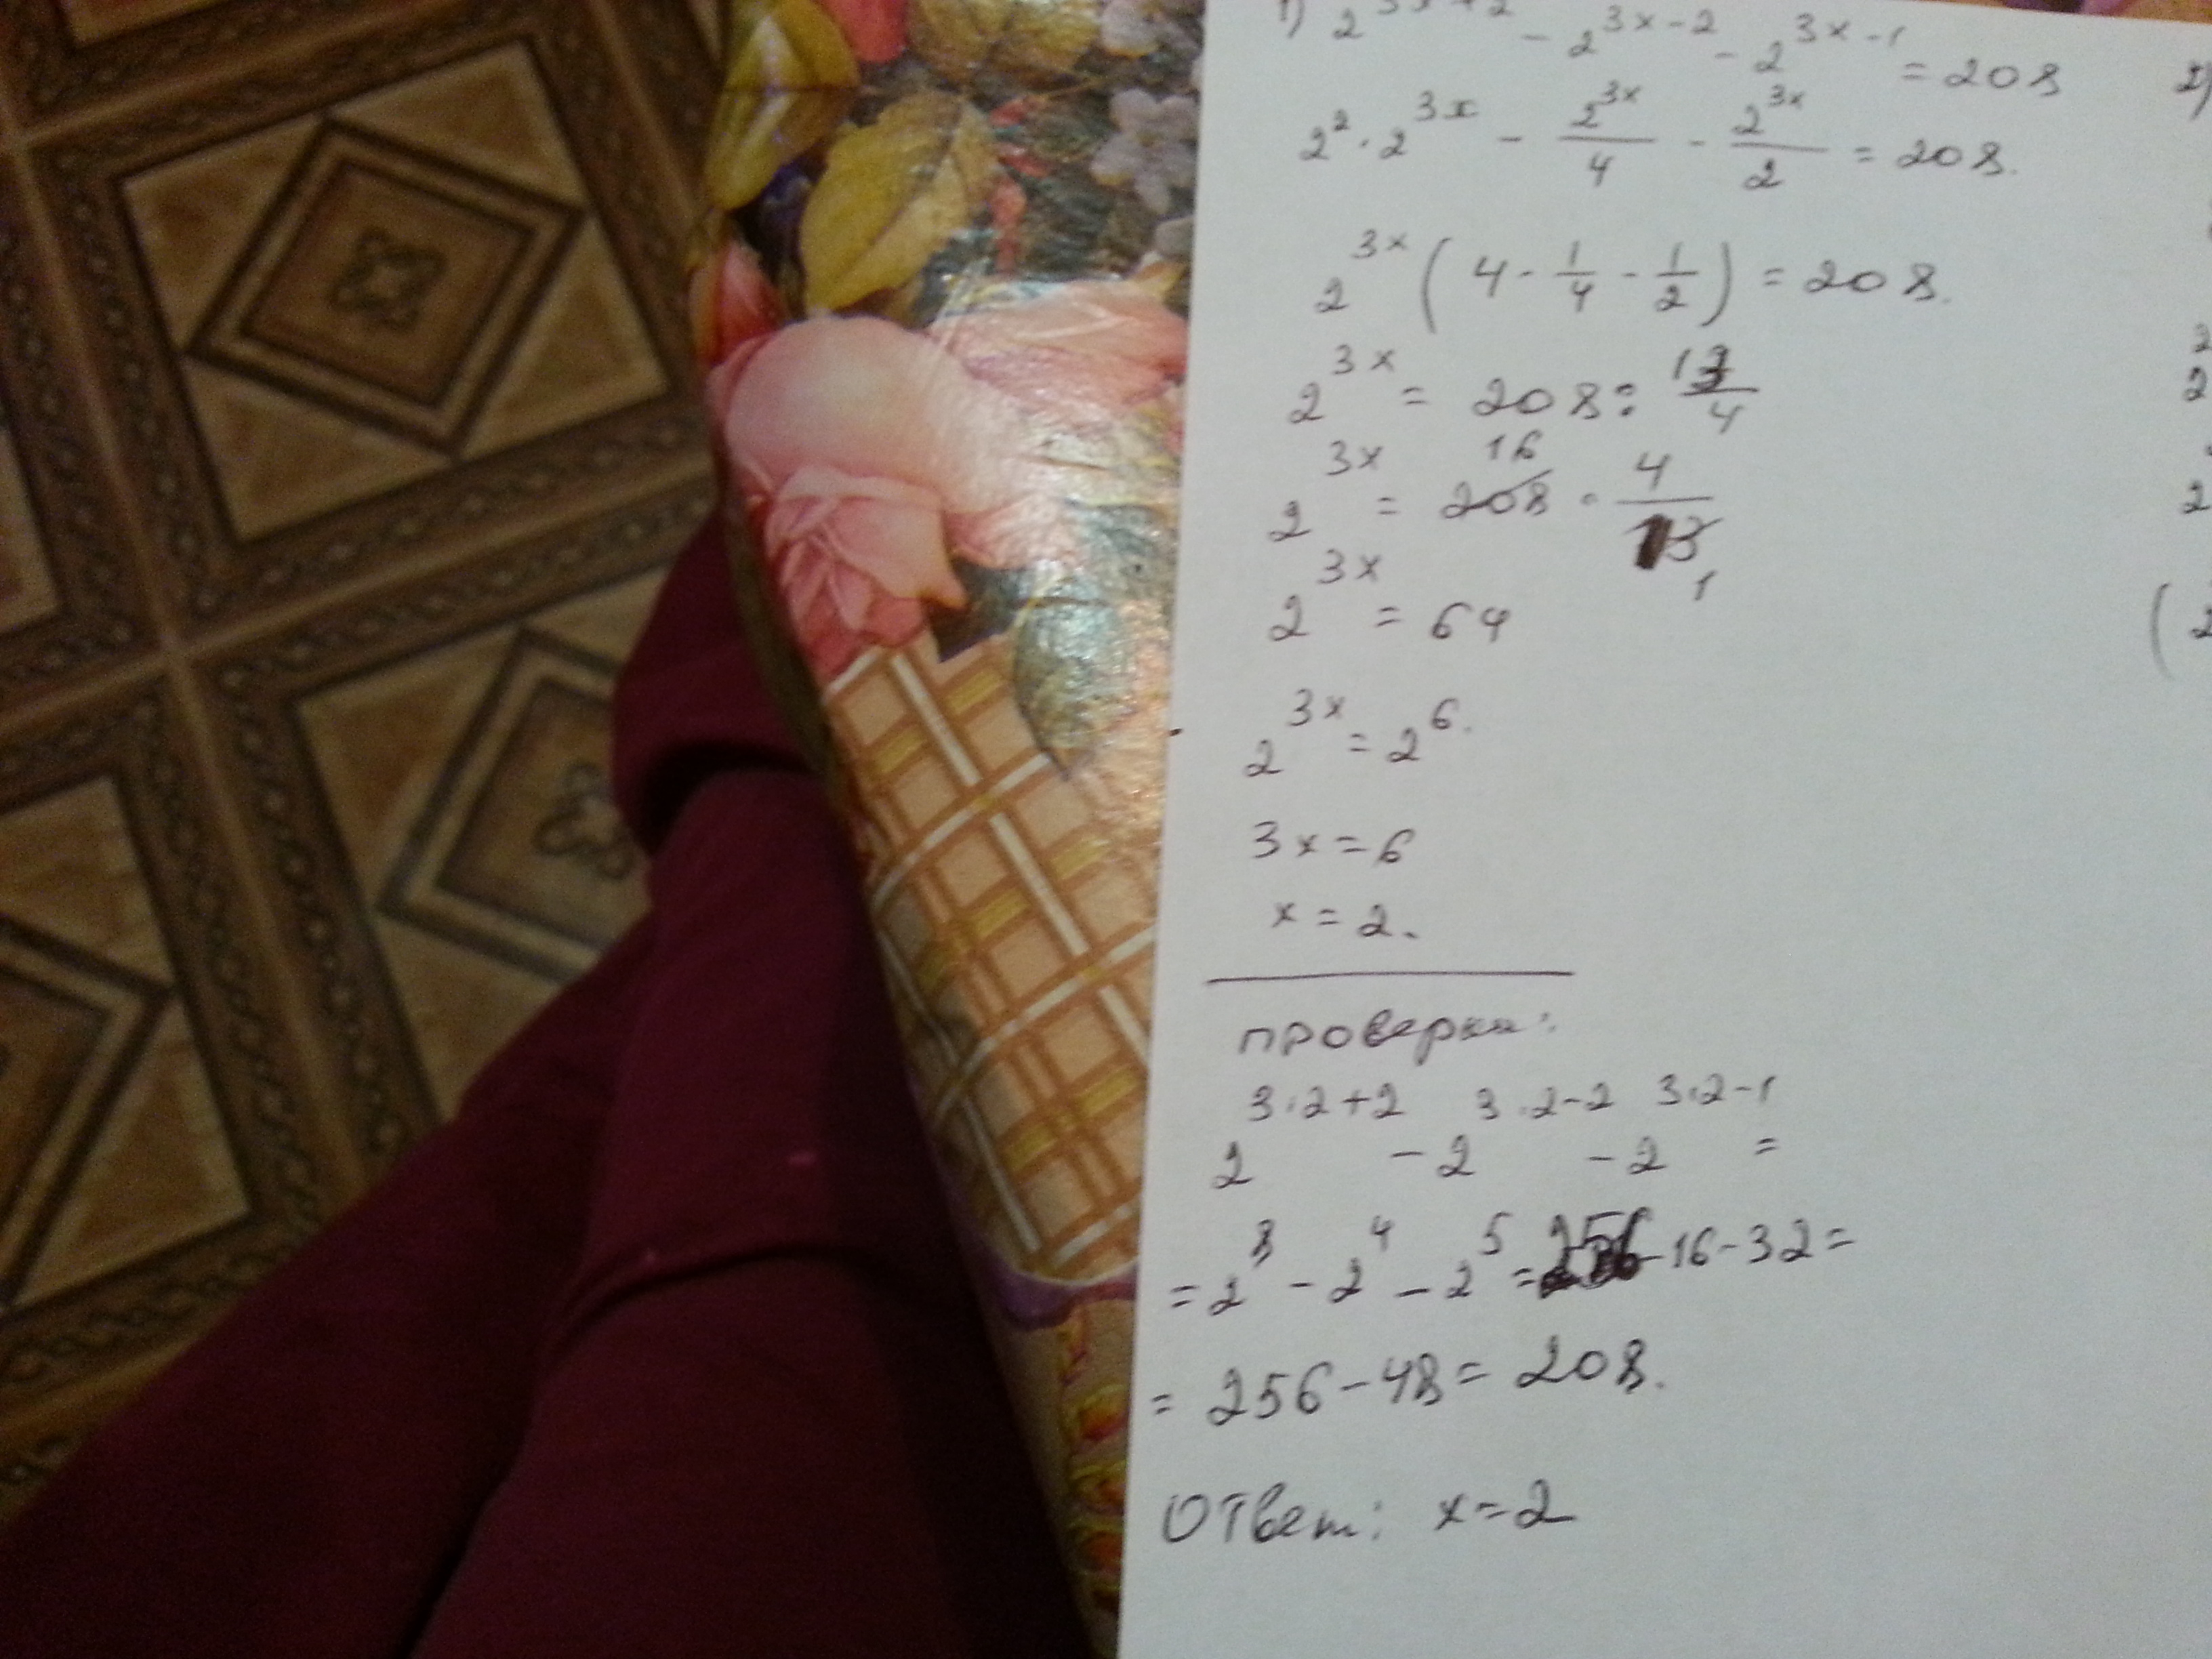 1) 2^{3x+2} - 2^{3x-2} - 2^{3x-1} = 208
2)
2² · 2^{3x} - 2^{3x}/4 - 2^{3x}/2 = 208.
2^{3x} (4 - 1/4 - 1/2) = 208.
2^{3x} = 208 : 13/4
2^{3x} = 208 16 · 4/13 1
2^{3x} = 64
2^{3x} = 2^6.
3x = 6
x = 2.
проверка:
2^{3·2+2} - 2^{3·2-2} - 2^{3·2-1} =
= 2^8 - 2^4 - 2^5 = 256 - 16 - 32 =
= 256 - 48 = 208.
Ответ: x = 2